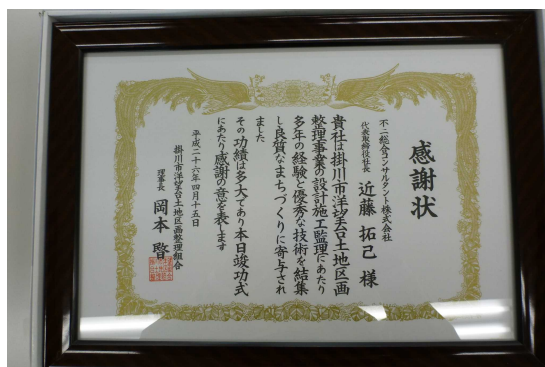 感謝状
不二総合コンサルタント株式会社
代表取締役社長 近藤 拓己 様
貴社は掛川市洋望台土地区画
整理事業の設計施工監理にあたり
多年の経験と優秀な技術を結集
し良質なまちづくりに寄与され
ました
その功績は多大であり本日竣功式
にあたり感謝の意を表します
平成二十六年四月十五日
掛川市洋望台土地区画整理組合
理事長 岡本